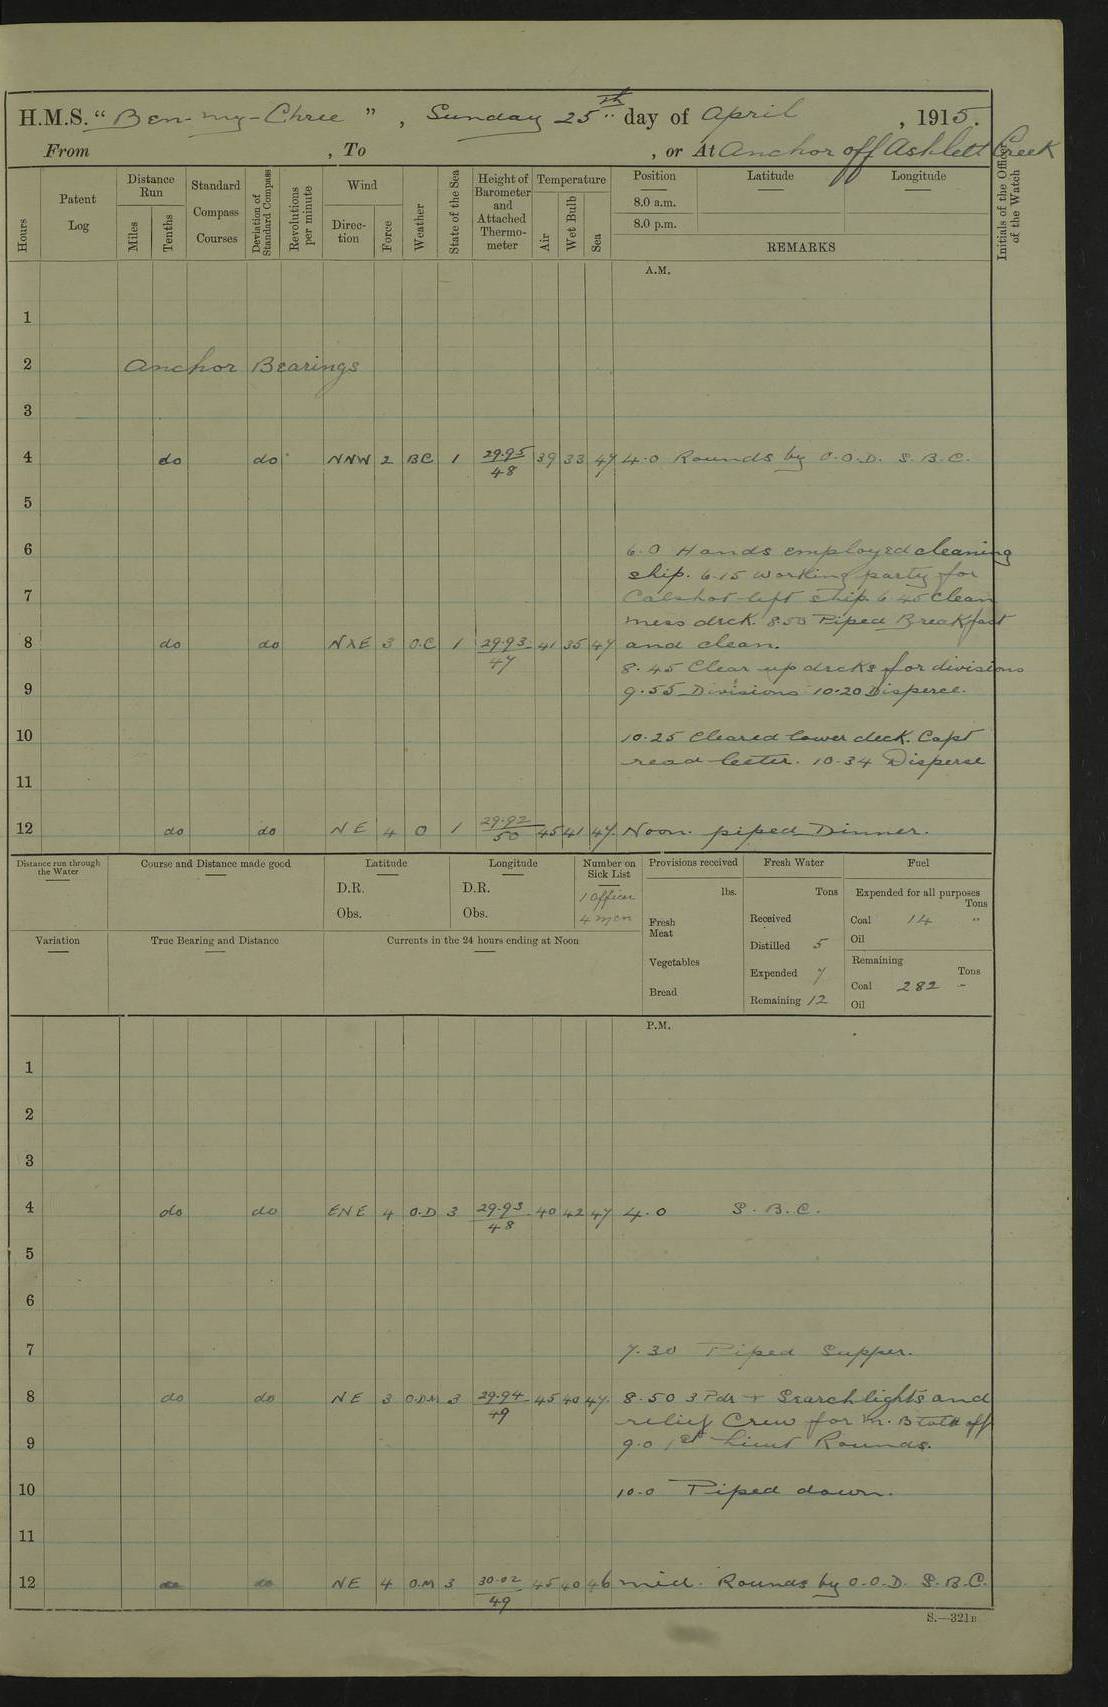 H.M.S. “Ben-my-Chree”, Sunday 25th day of April, 1915.
From , To , or At Anchor off Ashlett Creek
Hours
Patent Log
Distance Run
Miles
Tenths
Standard Compass Courses
Deviation of Standard Compass
Revolutions per minute
Wind
Direction
Force
Weather
State of the Sea
Height of Barometer and Attached Thermometer
Temperature
Air
Wet Bulb
Sea
Position
8.0 a.m.
8.0 p.m.
Latitude
Longitude
REMARKS
Initials of the Officer of the Watch
A.M.
1
2 Anchor Bearings
3
4 do do NNW 2 BC 1 29.95/48 39 33 47 4.0 Rounds by O.O.D. S.B.C.
5
6 6.0 Hands employed cleaning
ship. 6.15 Working party for
7 Calshot left ship. 6.45 Clean
mess deck. 8.50 Piped Breakfast
8 do do NXE 3 O.C 1 29.93/47 41 35 47 and clean.
8.45 Clear up decks for divisions
9 9.55 Divisions 10.20 Disperce.
10 10.25 Cleared lower deck. Capt
read letter. 10.34 Disperse
11
12 do do NE 4 O 1 29.92/50 45 41 47. Noon. piped Dinner.
Distance run through the Water
Course and Distance made good
Latitude
D.R.
Obs.
Longitude
D.R.
Obs.
Number on Sick List
1 Officer
4 men
Provisions received
lbs.
Fresh Meat
Vegetables
Bread
Fresh Water
Tons
Received
Distilled 5
Expended 7
Remaining 12
Fuel
Expended for all purposes
Tons
Coal 14 "
Oil
Remaining
Tons
Coal 282 -
Oil
Variation
True Bearing and Distance
Currents in the 24 hours ending at Noon
P.M.
1
2
3
4 do do ENE 4 O.D 3 29.93/48 40 42 47 4.0 S.B.C.
5
6
7 7.30 Piped Supper.
8 do do NE 3 O.D.M 3 29.94/49 45 40 47. 8.50 3 Pdr + Searchlights and
relief Crew for M.B told off
9 9.0 1st Lieut Rounds.
10 10.0 Piped down.
11
12 do do NE 4 O.M 3 30.02/49 45 40 46 mid. Rounds by O.O.D. S.B.C.
S.—321B